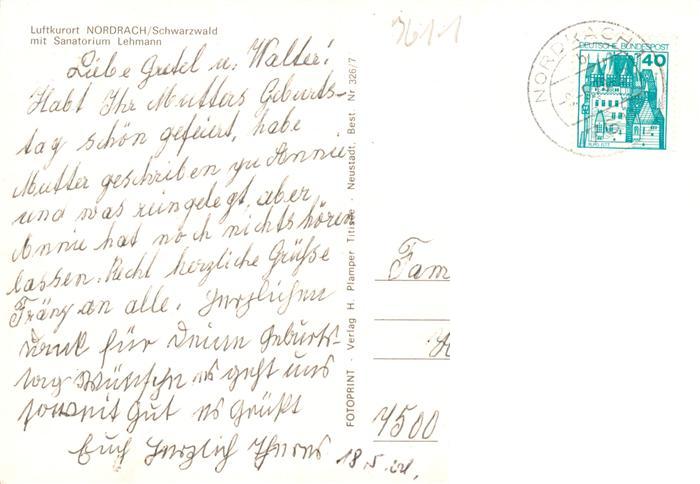 Luftkurort NORDRACH/Schwarzwald
mit Sanatorium Lehmann
Liebe Gretel u. Walter!
Habt Ihr Mutters Geburts-
tag schön gefeiert, habe
Mutter geschrieben zu Annie
und was reingelegt, aber
Annie hat noch nichts hören
lassen. Recht herzliche Grüße
an alle. Herzlichen
Dank für Deine Geburts-
tag Wünsche es geht uns
soweit gut es grüßt
Euch Herzlich
18.5.
FOTOPRINT - Verlag H. Plamper Titisee - Neustadt, Best. Nr 326/7
NORDRACH
DEUTSCHE BUNDESPOST
40
Fam
7500